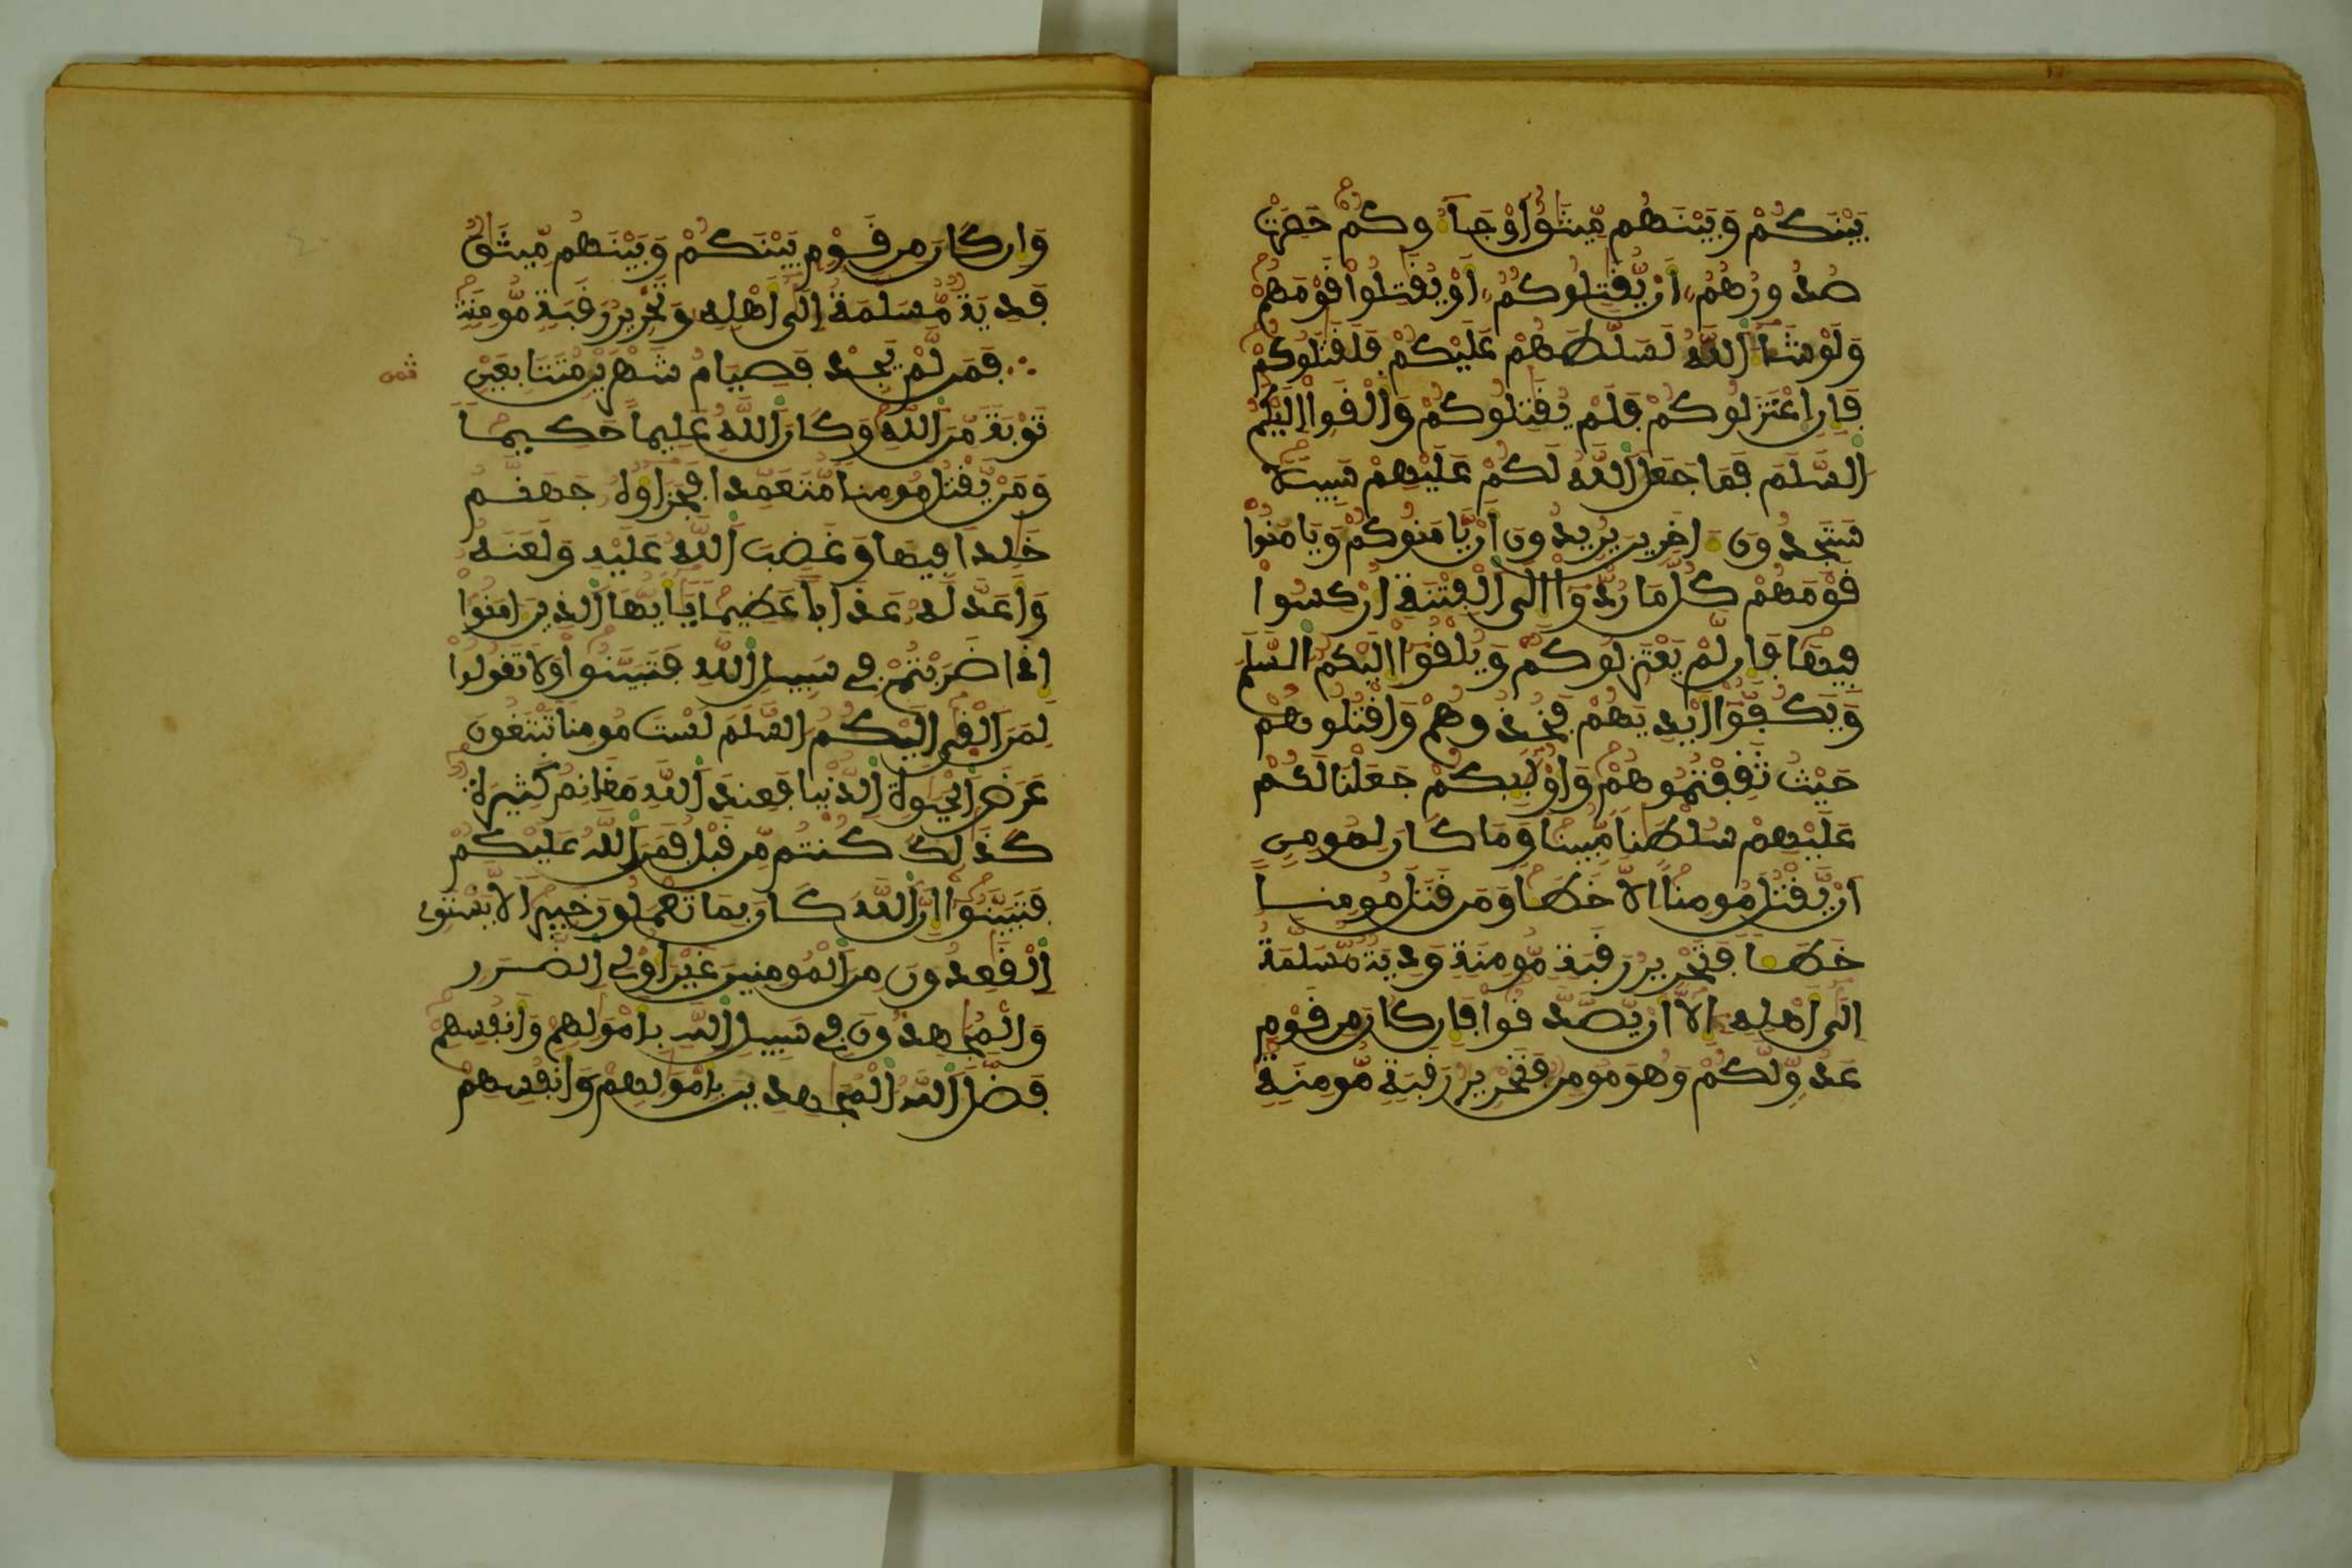 بَيْنَكُمْ وَبَيْنَهُم مِّيثَٰقٌ اَوْ جَآءُوكُمْ حَصِرَتْ
صُدُورُهُمُۥٓ أَنْ يُّقَٰتِلُوكُمُۥٓ أَوْ يُقَٰتِلُواْ قَوْمَهُمْ
وَلَوْ شَآءَ اَللَّهُ لَسَلَّطَهُمْ عَلَيْكُمْ فَلَقَٰتَلُوكُمْ
فَإِنِ اِعْتَزَلُوكُمْ فَلَمْ يُقَٰتِلُوكُمْ وَأَلْقَوِاْ اِلَيْكُمُ
اُلسَّلَمَ فَمَا جَعَلَ اَللَّهُ لَكُمْ عَلَيْهِمْ سَبِيلٗا
سَتَجِدُونَ ءَاخَرِينَ يُرِيدُونَ أَنْ يَّامَنُوكُمْ وَيَامَنُواْ
قَوْمَهُمْ كُلَّ مَا رُدُّوٓاْ إِلَى اَلْفِتْنَةِ أُرْكِسُواْ
فِيهَا فَإِن لَّمْ يَعْتَزِلُوكُمْ وَيُلْقُوٓاْ إِلَيْكُمُ اُلسَّلَمَ
وَيَكُفُّوٓاْ أَيْدِيَهُمْ فَخُذُوهُمْ وَاقْتُلُوهُمْ
حَيْثُ ثَقِفْتُمُوهُمْ وَأُوْلَٰٓئِكُمْ جَعَلْنَا لَكُمْ
عَلَيْهِمْ سُلْطَٰنا مُّبِينا وَمَا كَانَ لِمُومِنٍ
اَنْ يَّقْتُلَ مُومِناً اِلَّا خَطَـٔا وَمَن قَتَلَ مُومِنا
خَطَـٔا فَتَحْرِيرُ رَقَبَةٖ مُّومِنَةٖ وَدِيَةٞ مُّسَلَّمَةٌ
اِلَىٰٓ أَهْلِهِۦٓ إِلَّآ أَنْ يَّصَّدَّقُواْ فَإِن كَانَ مِن قَوْمٍ
عَدُوّٖ لَّكُمْ وَهُوَ مُومِن فَتَحْرِيرُ رَقَبَةٖ مُّومِنَةٖ
وَإِن كَانَ مِن قَوْمِۢ بَيْنَكُمْ وَبَيْنَهُم مِّيثَٰق
فَدِيَةٞ مُّسَلَّمَةٌ اِلَىٰٓ أَهْلِهِۦ وَتَحْرِيرُ رَقَبَةٖ مُّومِنَةٖ
فَمَن لَّمْ يَجِدْ فَصِيَامُ شَهْرَيْنِ مُتَتَابِعَيْنِ
ثمن
تَوْبَةٗ مِّنَ اَللَّهِ وَكَانَ اَللَّهُ عَلِيماً حَكِيما
وَمَنْ يَّقْتُلْ مُومِنا مُّتَعَمِّدا فَجَزَآؤُهُۥ جَهَنَّمُ
خَٰلِدا فِيهَا وَغَضِبَ اَللَّهُ عَلَيْهِ وَلَعَنَهُۥ
وَأَعَدَّ لَهُۥ عَذَاباً عَظِيما يَٰٓأَيُّهَا اَلذِينَ ءَامَنُوٓاْ
إِذَا ضَرَبْتُمْ فِي سَبِيلِ اِللَّهِ فَتَبَيَّنُواْ وَلَا تَقُولُواْ
لِمَنَ اَلْقَىٰٓ إِلَيْكُمُ اُلسَّلَمَ لَسْتَ مُومِنا تَبْتَغُونَ
عَرَضَ اَلْحَيَوٰةِ اِلدُّنْيا فَعِندَ اَللَّهِ مَغَانِمُ كَثِيرَةٞ
كَذَٰلِكَ كُنتُم مِّن قَبْلُ فَمَنَّ اَللَّهُ عَلَيْكُمْ
فَتَبَيَّنُوٓاْ إِنَّ اَللَّهَ كَانَ بِمَا تَعْمَلُونَ خَبِيرا لَّا يَسْتَوِي
اِلْقَٰعِدُونَ مِنَ اَلْمُومِنِينَ غَيْرَ أُوْلِي اِلضَّرَرِ
وَالْمُجَٰهِدُونَ فِي سَبِيلِ اِللَّهِ بِأَمْوَٰلِهِمْ وَأَنفُسِهِمْ
فَضَّلَ اَللَّهُ اُلْمُجَٰهِدِينَ بِأَمْوَٰلِهِمْ وَأَنفُسِهِمْ